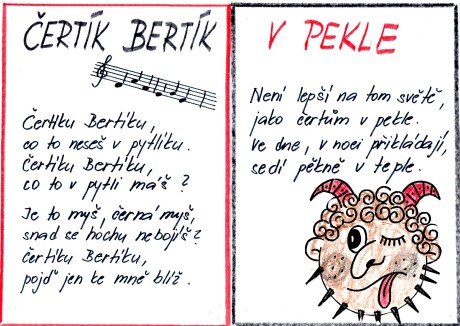 ČERTÍK BERTÍK
Čertíku Bertíku,
co to neseš v pytlíku.
Čertíku Bertíku,
co to v pytli máš?
Je to myš, černá myš,
snad se hochu nebojíš?
čertíku Bertíku,
pojď jen ke mně blíž.
V PEKLE
Není lepší na tom světě,
jako čertům v pekle.
Ve dne, v noci přikládají,
sedí pěkně v teple.